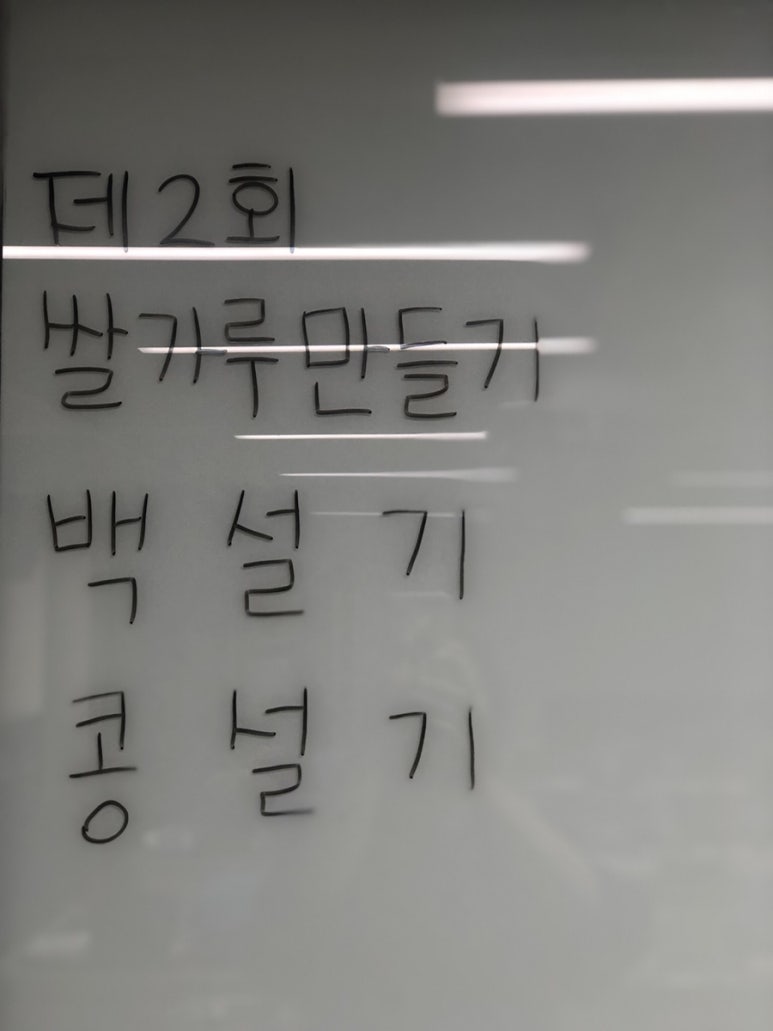 제2회
쌀가루만들기
백 설 기
콩 설 기